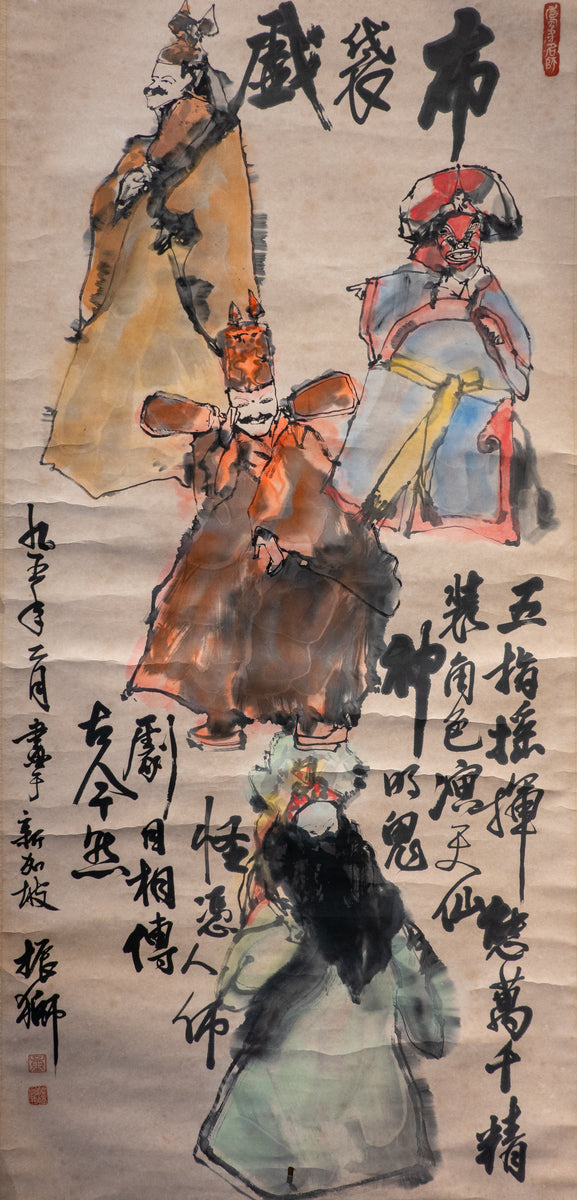 布袋戲
五指搖揮態萬千精
裝角色演天仙
神明鬼
怪憑人飾
劇目相傳
古今然
九五年二月畫于新加坡
振獅